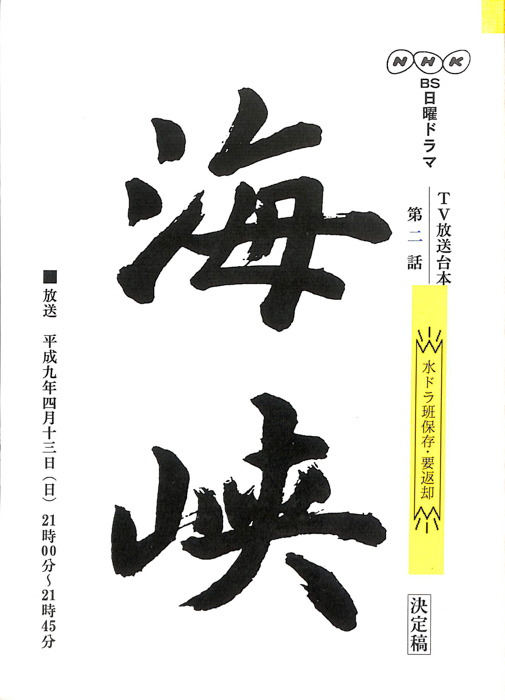 NHK
BS日曜ドラマ
TV放送台本
第二話
水ドラ班保存・要返却
決定稿
海峡
■放送 平成九年四月十三日（日） 21時00分〜21時45分